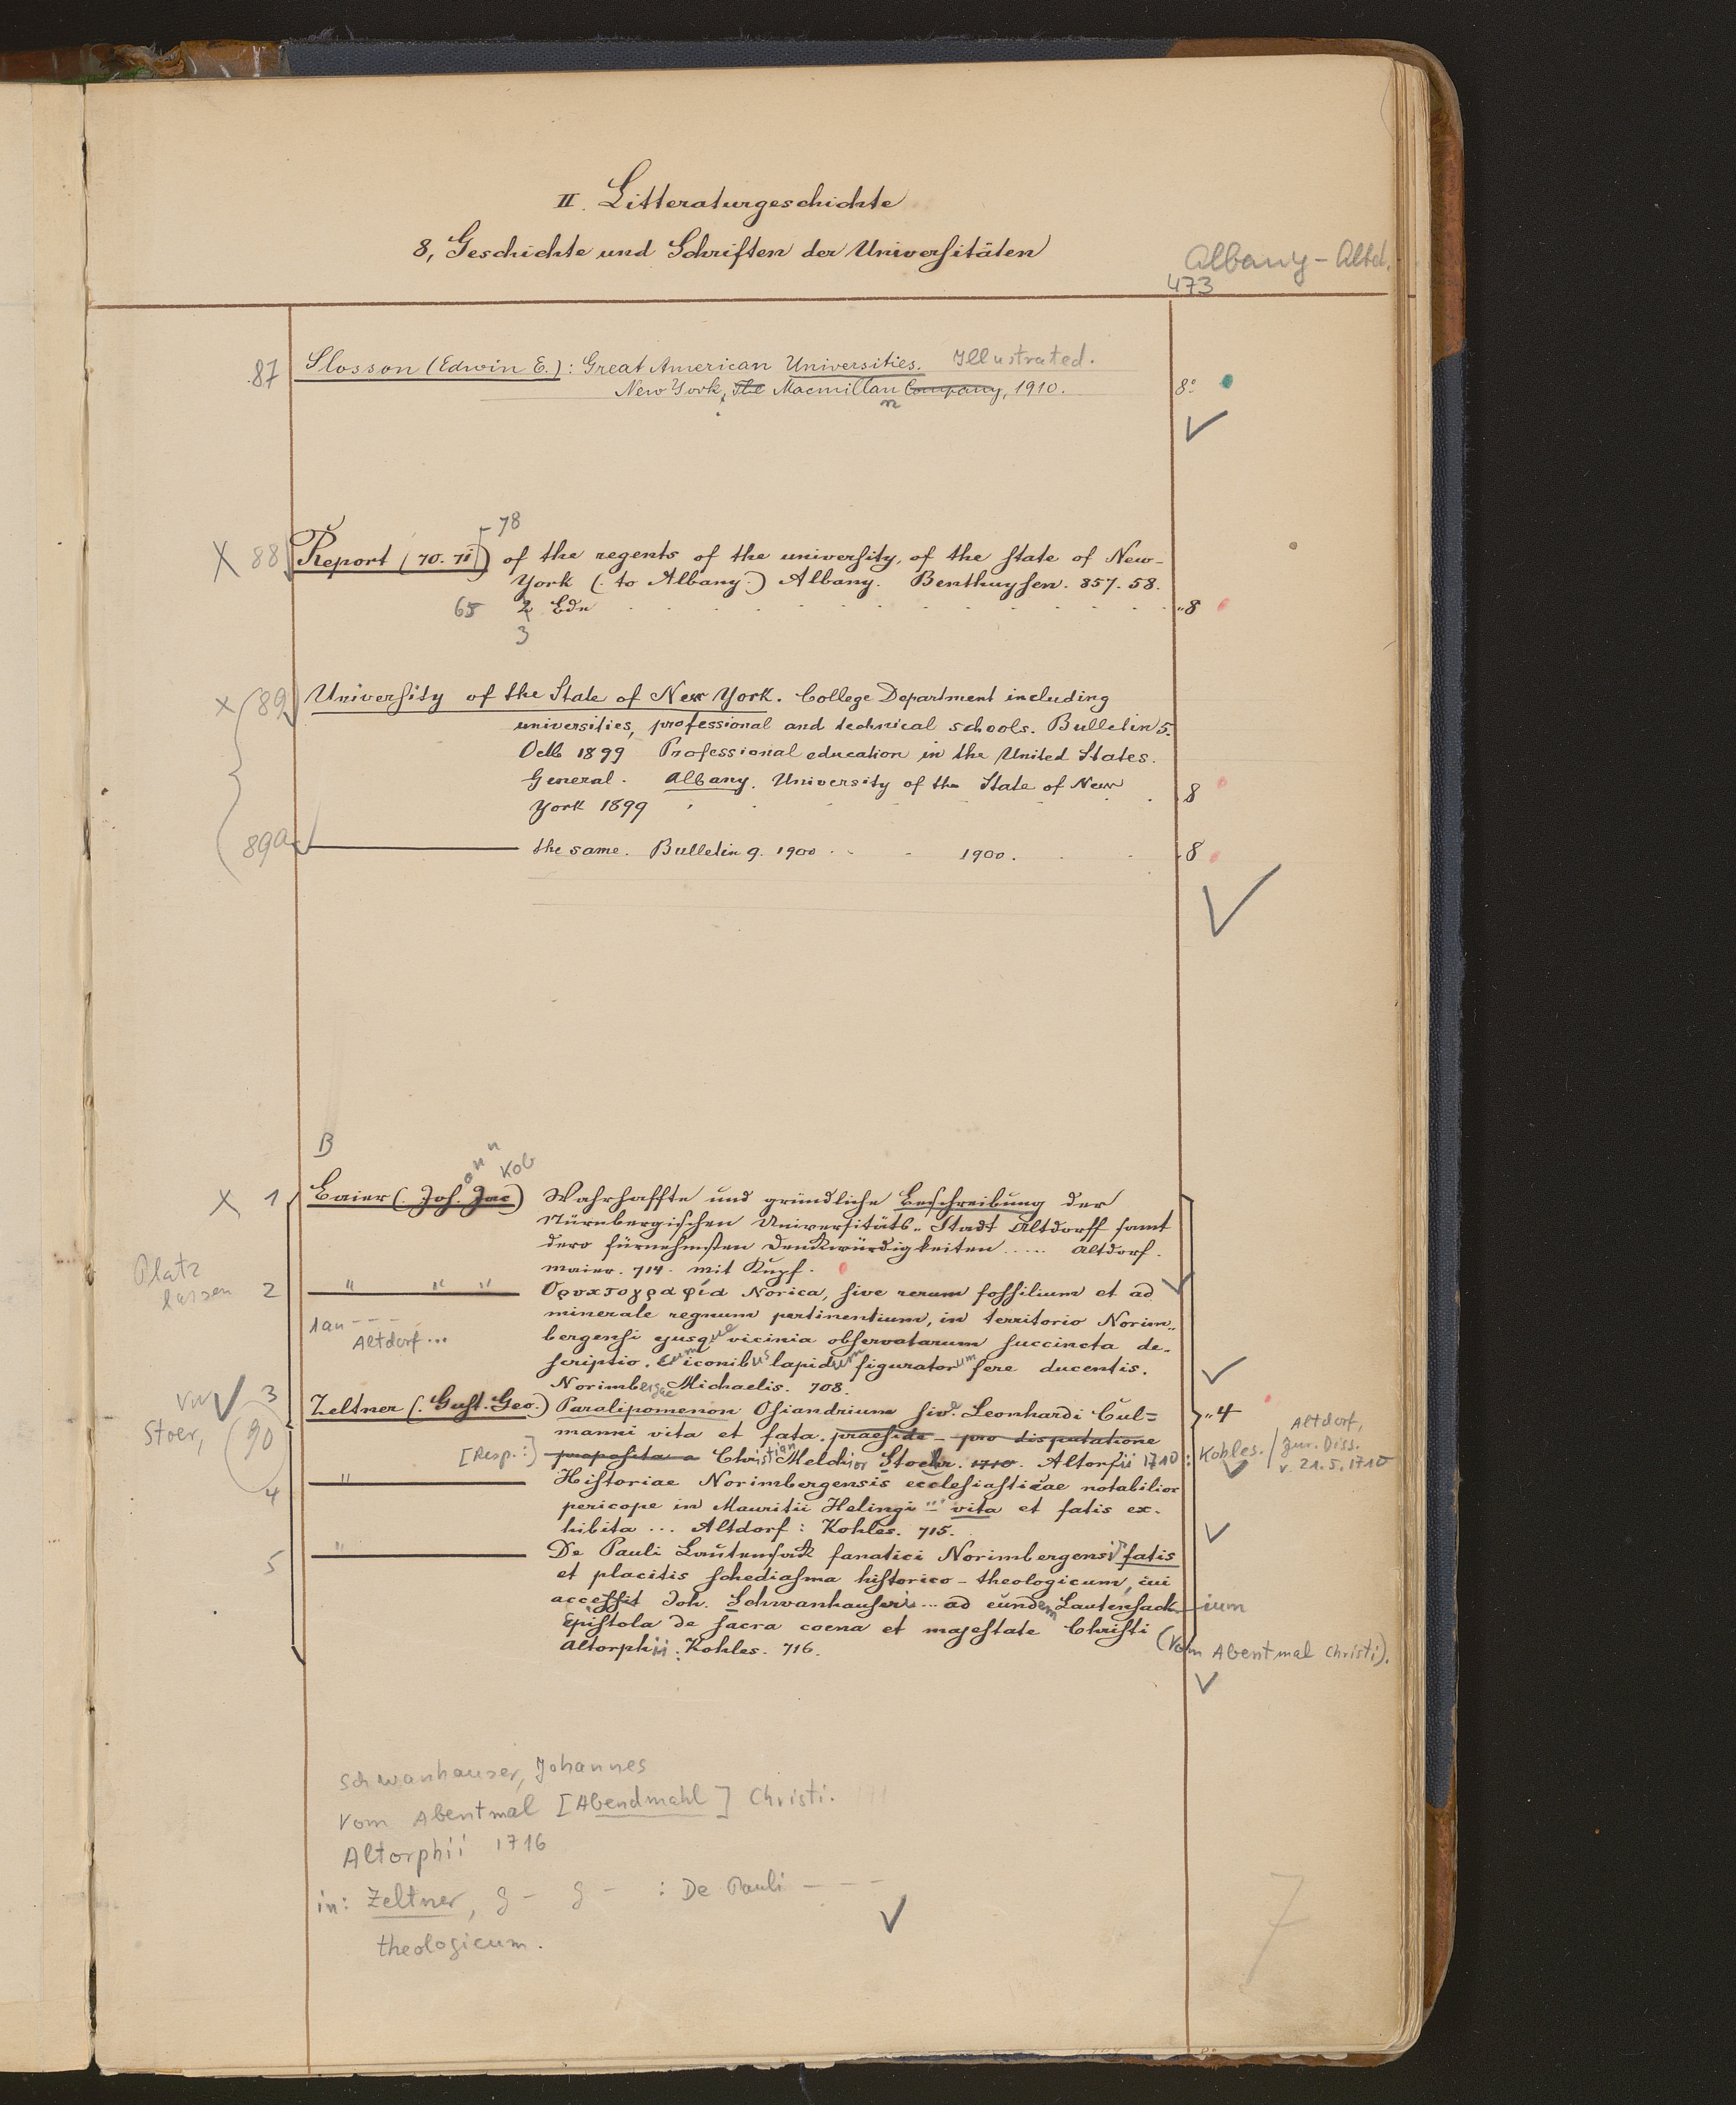 II. Litteraturgeschichte
8, Geschichte und Schriften der Universitäten
Albany - Altd.
473
87 Slosson (Edwin E.): Great American Universities. Illustrated.
New York, The Macmillan Company, 1910. 8°
n
78
X 88 Report (70. 71) of the regents of the university, of the state of New-
York (. to Albany.) Albany. Benthuysen. 857. 58.
65 2 Edn 8
3
X 89 University of the State of New York. College Department including
universities, professional and technical schools. Bulletin 5.
Octb 1899 Professional education in the United States.
General. Albany. University of the State of New
York 1899 8
89a the same. Bulletin 9. 1900 1900. 8
B
ohann kob
X 1 Baier (. Joh. Jac) Wahrhaffte und gründliche Beschreibung der
Nürnbergischen Universitäts-Stadt Altdorff samt
dero fürnehmsten Denkwürdigkeiten ..... Altdorf.
maier. 714. mit Kupf.
Platz
lassen
2 " " " Ορυκτογραφία Norica, sive rerum fossilium et ad
minerale regnum pertinentium, in territorio Norim-
1an ---
Altdorf...
bergensi ejusque vicinia observatarum succincta de-
scriptio. Cum iconibus lapidum figuratorum fere ducentis.
Norimbergae Michaelis. 708.
3 Zeltner (. Gust. Geo.) Paralipomenon Osiandrium sive Leonhardi Cul=
manni vita et fata. praeside - pro disputatione
"4
Stoer, 90
[Resp.:] proposita a Christian Melchior Stoehr. 1710. Altorfii 1710: Kohles.
Altdorf,
Jur. Diss.
v. 21.5.1710
4 " Historiae Norimbergensis ecclesiasticae notabilior
pericope in Mauritii Helingi vita et fatis ex-
hibita ... Altdorf: Kohles. 715.
5 " De Pauli Lautensack fanatici Norimbergensis fatis
et placitis schediasma historico-theologicum, cui
accessit Joh. Schwanhauseri ... ad eundem Lautensack-ium
Epistola de sacra coena et majestate Christi (Vom Abentmal Christi).
Altorphii: Kohles. 716.
Schwanhauser, Johannes
Vom Abentmal [Abendmahl] Christi.
Altorphii 1716
in: Zeltner, G - G - : De Pauli ---
theologicum.
7